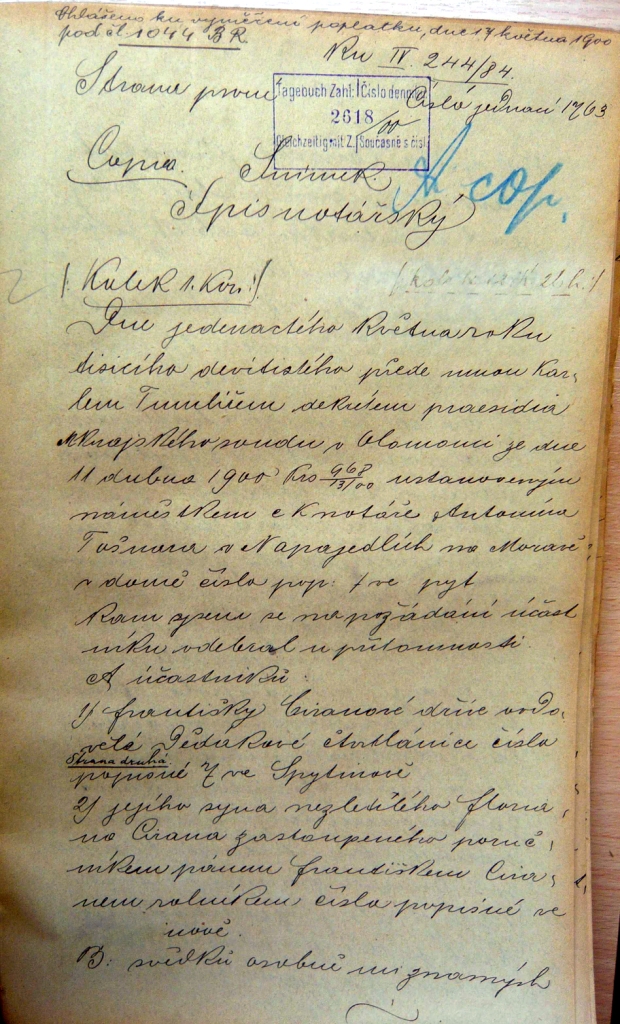 Ohlášeno ku vyměření poplatku, dne 17 května 1900
pod čl 1044 B R.
Ku IV 244/84.
Strana první
Číslo jednací 1763
Tagebuch Zahl: Číslo denníku
2618
/00
Gleichzeitig mit Z. Současně s čísl
Copia.
Snímek.
A cop.
Spis notářský
/: Kolek 1. Kor :/
Dne jedenactého května roku
tisícího devítistého přede mnou Kar„
lem Tumlířem dekretem praesidia
krajského soudu v Olomouci ze dne
11 dubna 1900 Prs 968/13/00 ustanoveným
náměstkem c k notáře Antonína
v Napajedlích na Moravě
v domě číslo pop: ve
kam jsem se na požádání účast
níků odebral u přítomnosti.
A účastníků:
1) Františky Ciranové dříve ovdo„
vělé čtvrtlánice číslo
Strana druhá
popisné ve Spytinově
2) jejího syna nezletilého Floria„
na Cirana zastoupeného poruč„
níkem pánem Františkem Cira„
nem rolníkem číslo popisné ve
nově.
B: svědků osobně mi známých